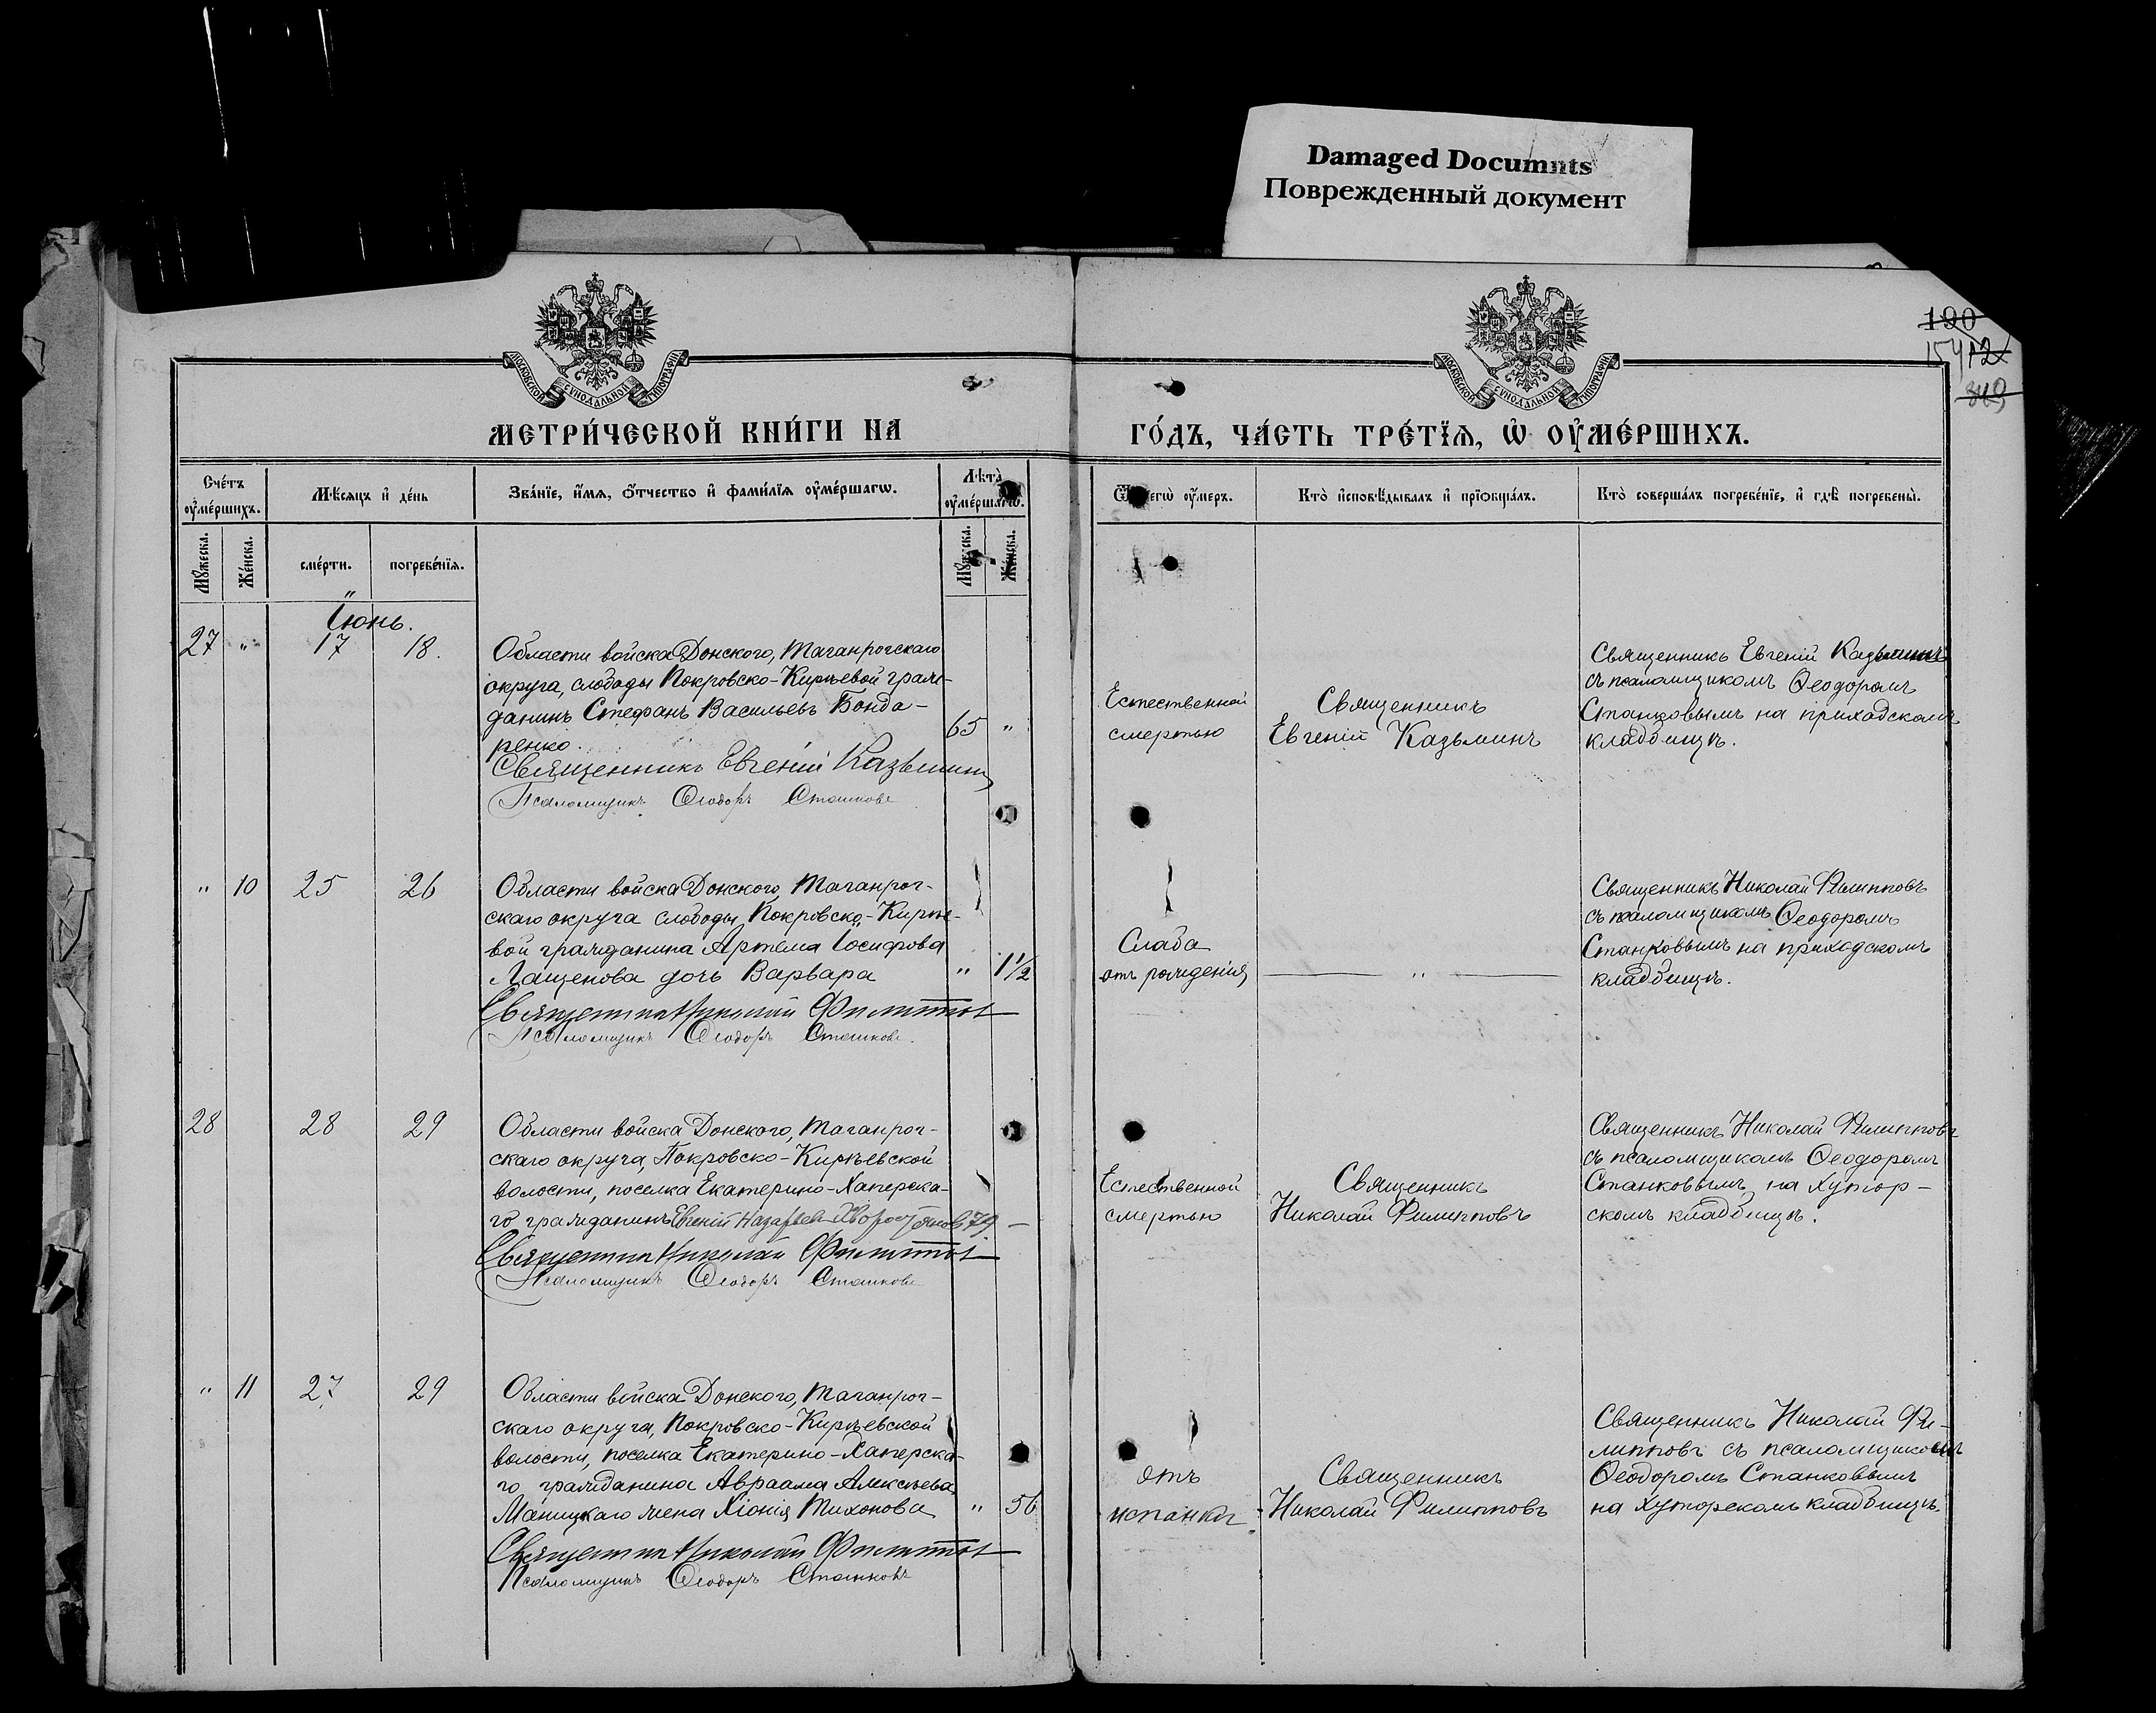 Damaged Documnts
Поврежденный документ
190
154 12
849
МОСКОВСКОЙ СУНОДАЛЬНОЙ ТИПОГРАФІИ
МОСКОВСКОЙ СУНОДАЛЬНОЙ ТИПОГРАФІИ
МЕТРИ́ЧЕСКОЙ КНИ́ГИ НА
ГО́ДЪ, ЧА́СТЬ ТРЕ́ТЇѦ, Ѡ҆ ОУ҆МЕ́РШИХЪ.
Сче́тъ
оу҆ме́ршихъ.
Мѣ́сѧцъ и҆ де́нь
Зва́нїе, и҆́мѧ, ѻ҆́тчество и҆ фами́лїѧ оу҆ме́ршагѡ.
Лѣ̀та
оу҆ме́ршагѡ.
Ѿ чегѡ̀ оу҆́меръ.
Кто̀ и҆сповѣ́дывалъ и҆ прїѡбща́лъ.
Кто̀ соверша́лъ погребе́нїе, и҆ гдѣ̀ погребены̀.
Мꙋ́жеска.
Же́нска.
сме́рти.
погребе́нїѧ.
Мꙋ́жеска.
Же́нска.
"
Іюнь.
27 " 17 18.
Области войска Донского, Таганрогскаго
округа, слободы Покровско-Кирѣевой граж-
данинъ Стефанъ Васильевъ Бонда-
ренко.
65 "
Священникъ Евгеній Казьминъ
Псаломщикъ Ѳеодоръ Станковъ
Естественной
смертью
Священникъ
Евгеній Казьминъ
Священникъ Евгеній Казьминъ
съ псаломщикомъ Ѳеодоромъ
Станковымъ на приходскомъ
кладбищѣ.
" 10 25 26
Области войска Донского, Таганрог-
скаго округа слободы Покровско-Кирѣе-
вой гражданина Артема Іосифова
Лащенова дочь Варвара
" 1½
Священникъ Николай Филипповъ
Псаломщикъ Ѳеодоръ Станковъ.
Слаба
отъ рожденія
"
Священникъ Николай Филипповъ
съ псаломщикомъ Ѳеодоромъ
Станковымъ на приходскомъ
кладбищѣ.
28 28 29
Области войска Донского, Таганрог-
скаго округа, Покровско-Кирѣевской
волости, поселка Екатерино-Хаперска-
го гражданинъ Евгеній Назарьев Хворостянов 79 —
Священникъ Николай Филипповъ
Псаломщикъ Ѳеодоръ Станковъ
Естественной
смертью
Священникъ
Николай Филипповъ
Священникъ Николай Филипповъ
съ псаломщикомъ Ѳеодоромъ
Станковымъ на хутор-
скомъ кладбищѣ.
" 11 27 29
Области войска Донского, Таганрог-
скаго округа, Покровско-Кирѣевской
волости, поселка Екатерино-Хаперска-
го гражданина Авраама Алексѣева
Маницкаго жена Хіонія Тихонова
" 56
Священникъ Николай Филипповъ
Псаломщикъ Ѳеодоръ Станковъ
отъ
испанки
Священникъ
Николай Филипповъ
Священникъ Николай Фи-
липповъ съ псаломщикомъ
Ѳеодоромъ Станковымъ
на хуторскомъ кладбищѣ.